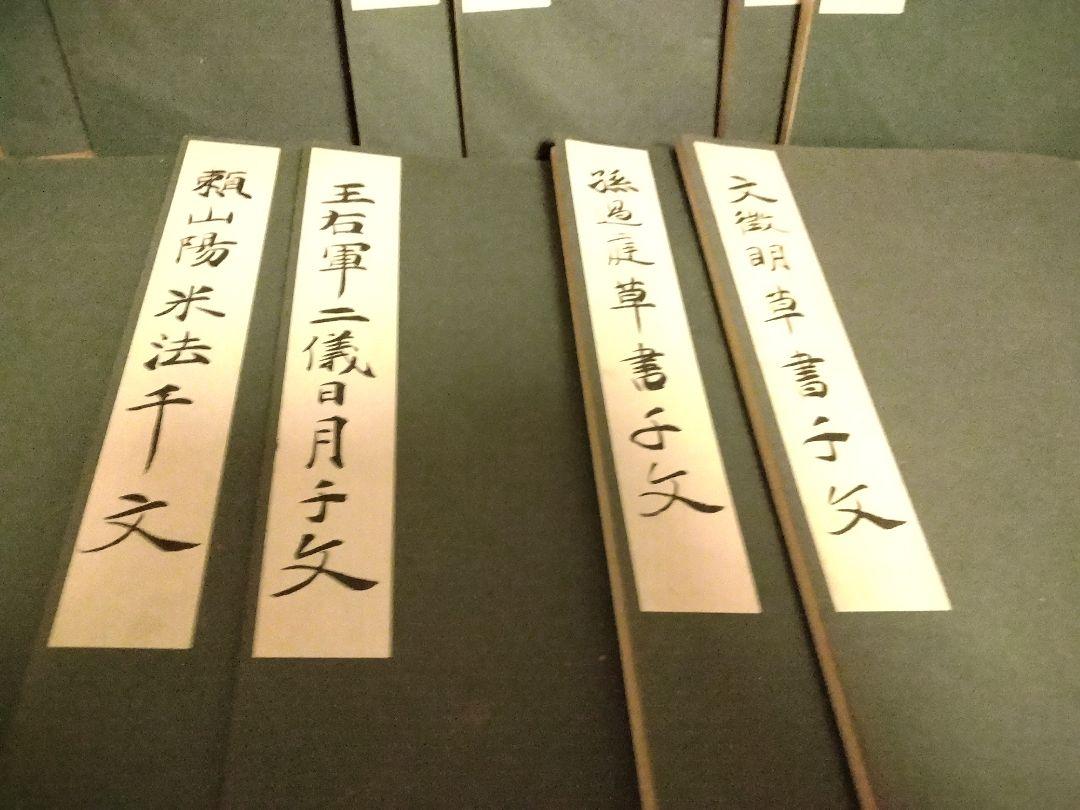 文徴明草書千文
孫過庭草書千文
王右軍二儀日月千文
頼山陽米法千文